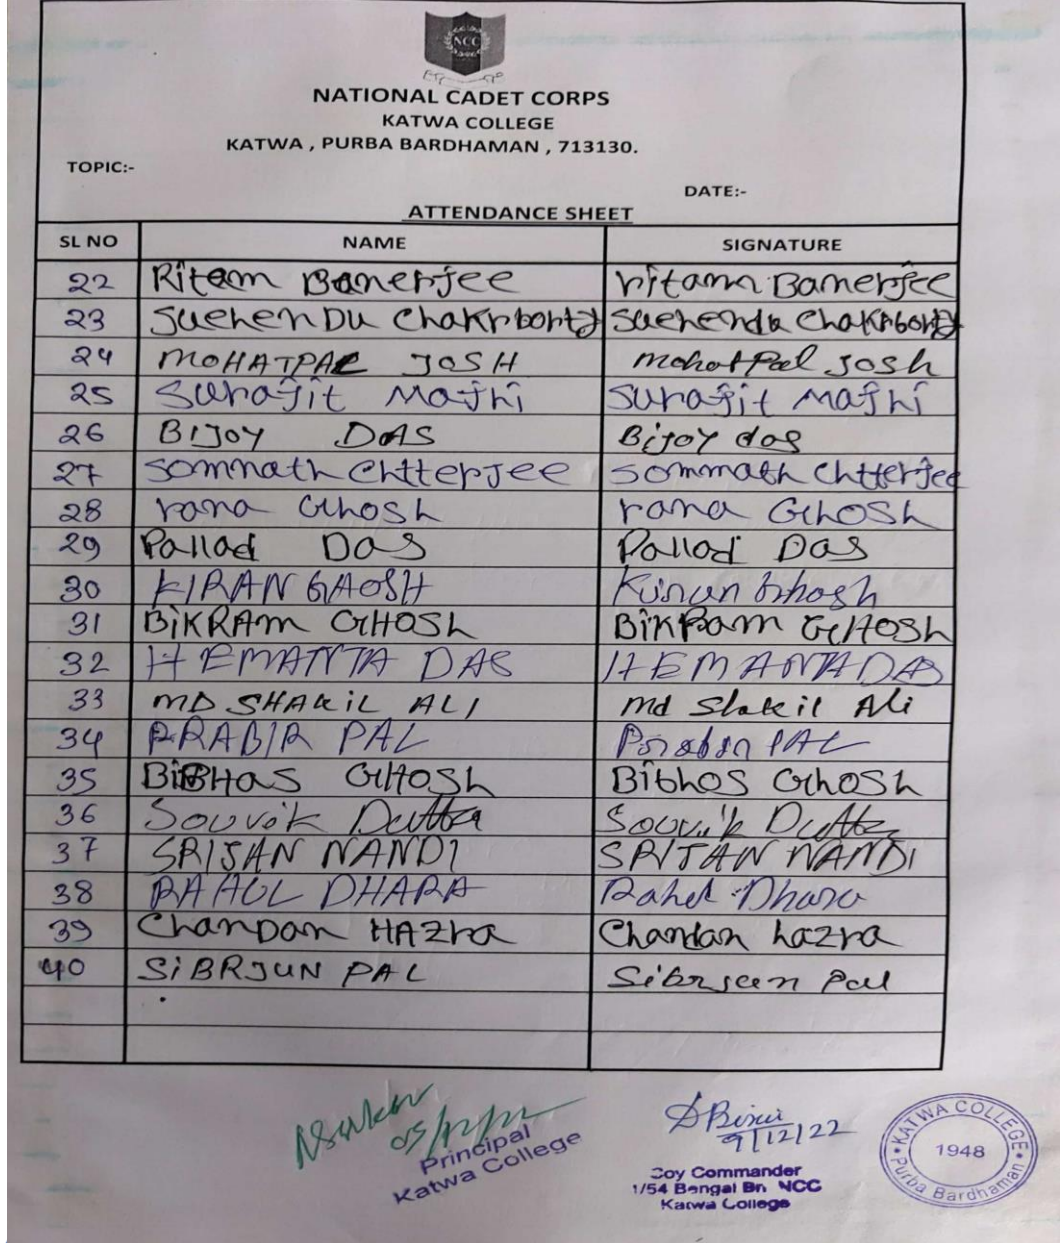 NCC
NATIONAL CADET CORPS
KATWA COLLEGE
KATWA , PURBA BARDHAMAN , 713130.
TOPIC:-
DATE:-
ATTENDANCE SHEET
SL NO NAME SIGNATURE
22 Ritam Banerjee ritam Banerjee
23 SuehenDu Chakrborty Suehendu Chakrborty
24 MOHATPAL JOSH mohatPal Josh
25 Surajit Majhi Surajit Majhi
26 BIJOY DAS Bijoy das
27 Somnath Chtterjee Sommath Chtterjee
28 rana Ghosh rana Ghosh
29 Pallad Das Pallad Das
30 KIRAN GAOSH Kiran Ghosh
31 BiKRAm GHOSh BiKRam GHOSh
32 HEMANTA DAS HEMANTA DAS
33 MD SHAKiL ALI Md Shakil Ali
34 PRABIR PAL Prabir PAL
35 BiBHAS GHOSh Bibhos Ghosh
36 Souvik Dutta Souvik Dutta
37 SRIJAN NANDI SRIJAN NANDI
38 RAHUL DHARA Rahul Dhara
39 ChanDan HAZra Chandan hazra
40 SiBRJUN PAL Sibrjun Pal
05/12/22
Principal
Katwa College
9/12/22
Coy Commander
1/54 Bengal Bn NCC
Katwa College
KATWA COLLEGE
1948
Purba Bardhaman